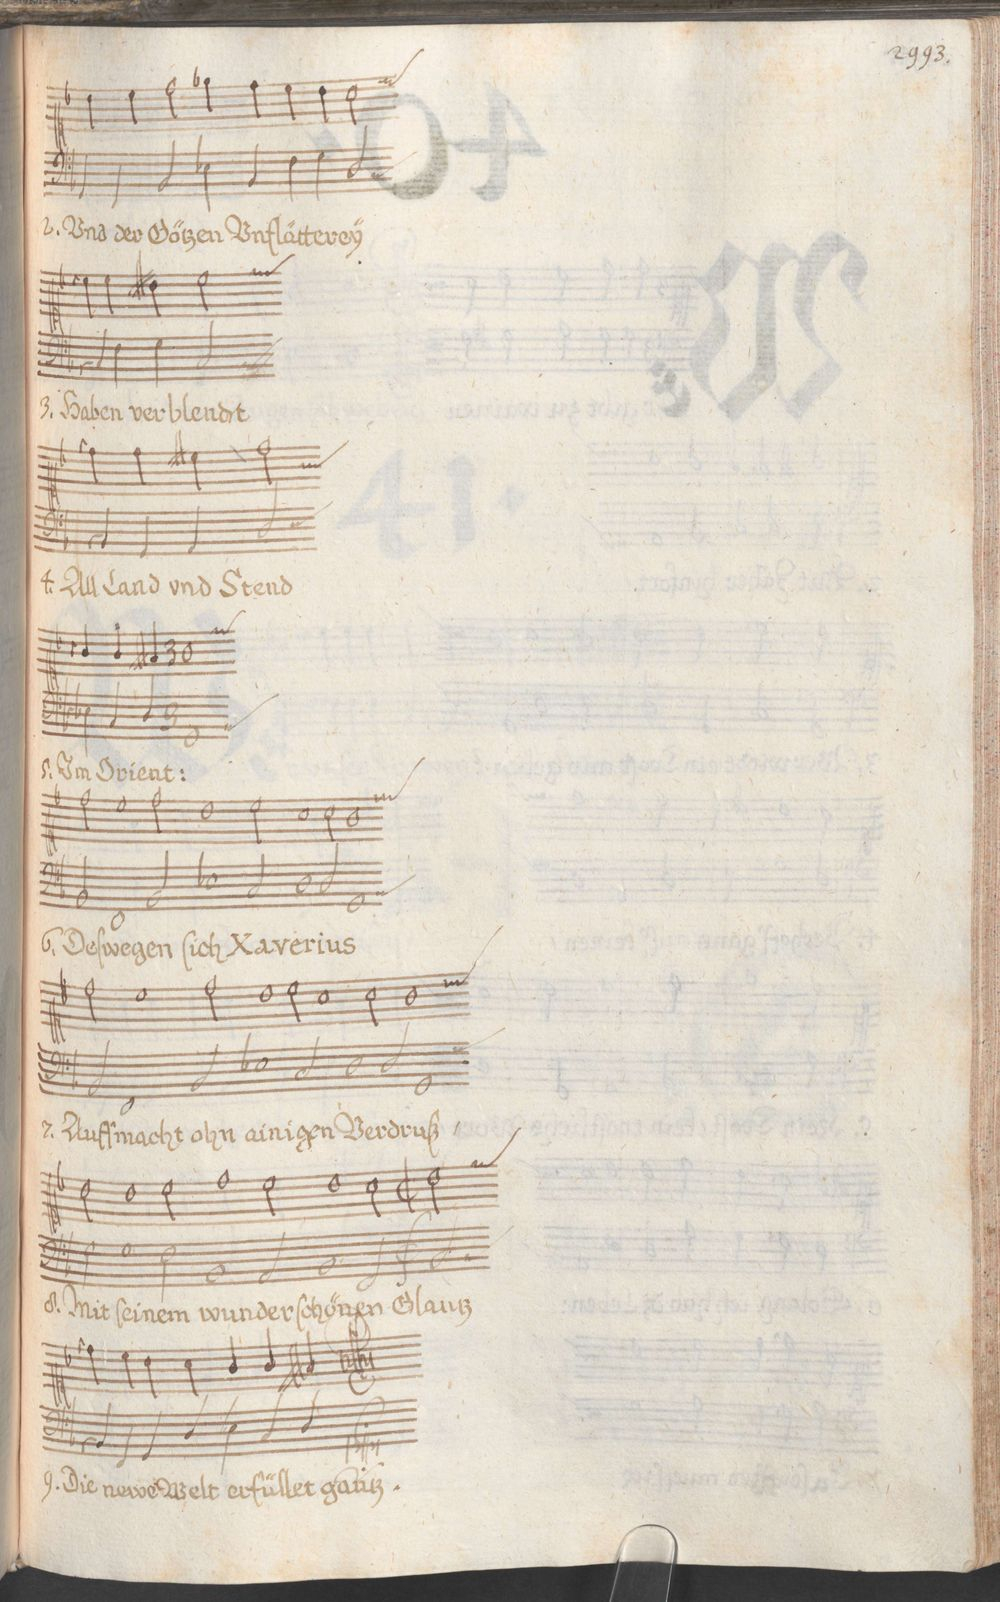 2993.
2. Vnd der Götzen Vnflätterey
3. Haben verblendt
4. All Land vnd Stend
5. Im Orient:
6. Deßwegen sich Xaverius
7. Auffmacht ohn ainigen Verdruß
8. Mit seinem wunderschönen Glantz
9. Die newe Welt erfüllet gantz.